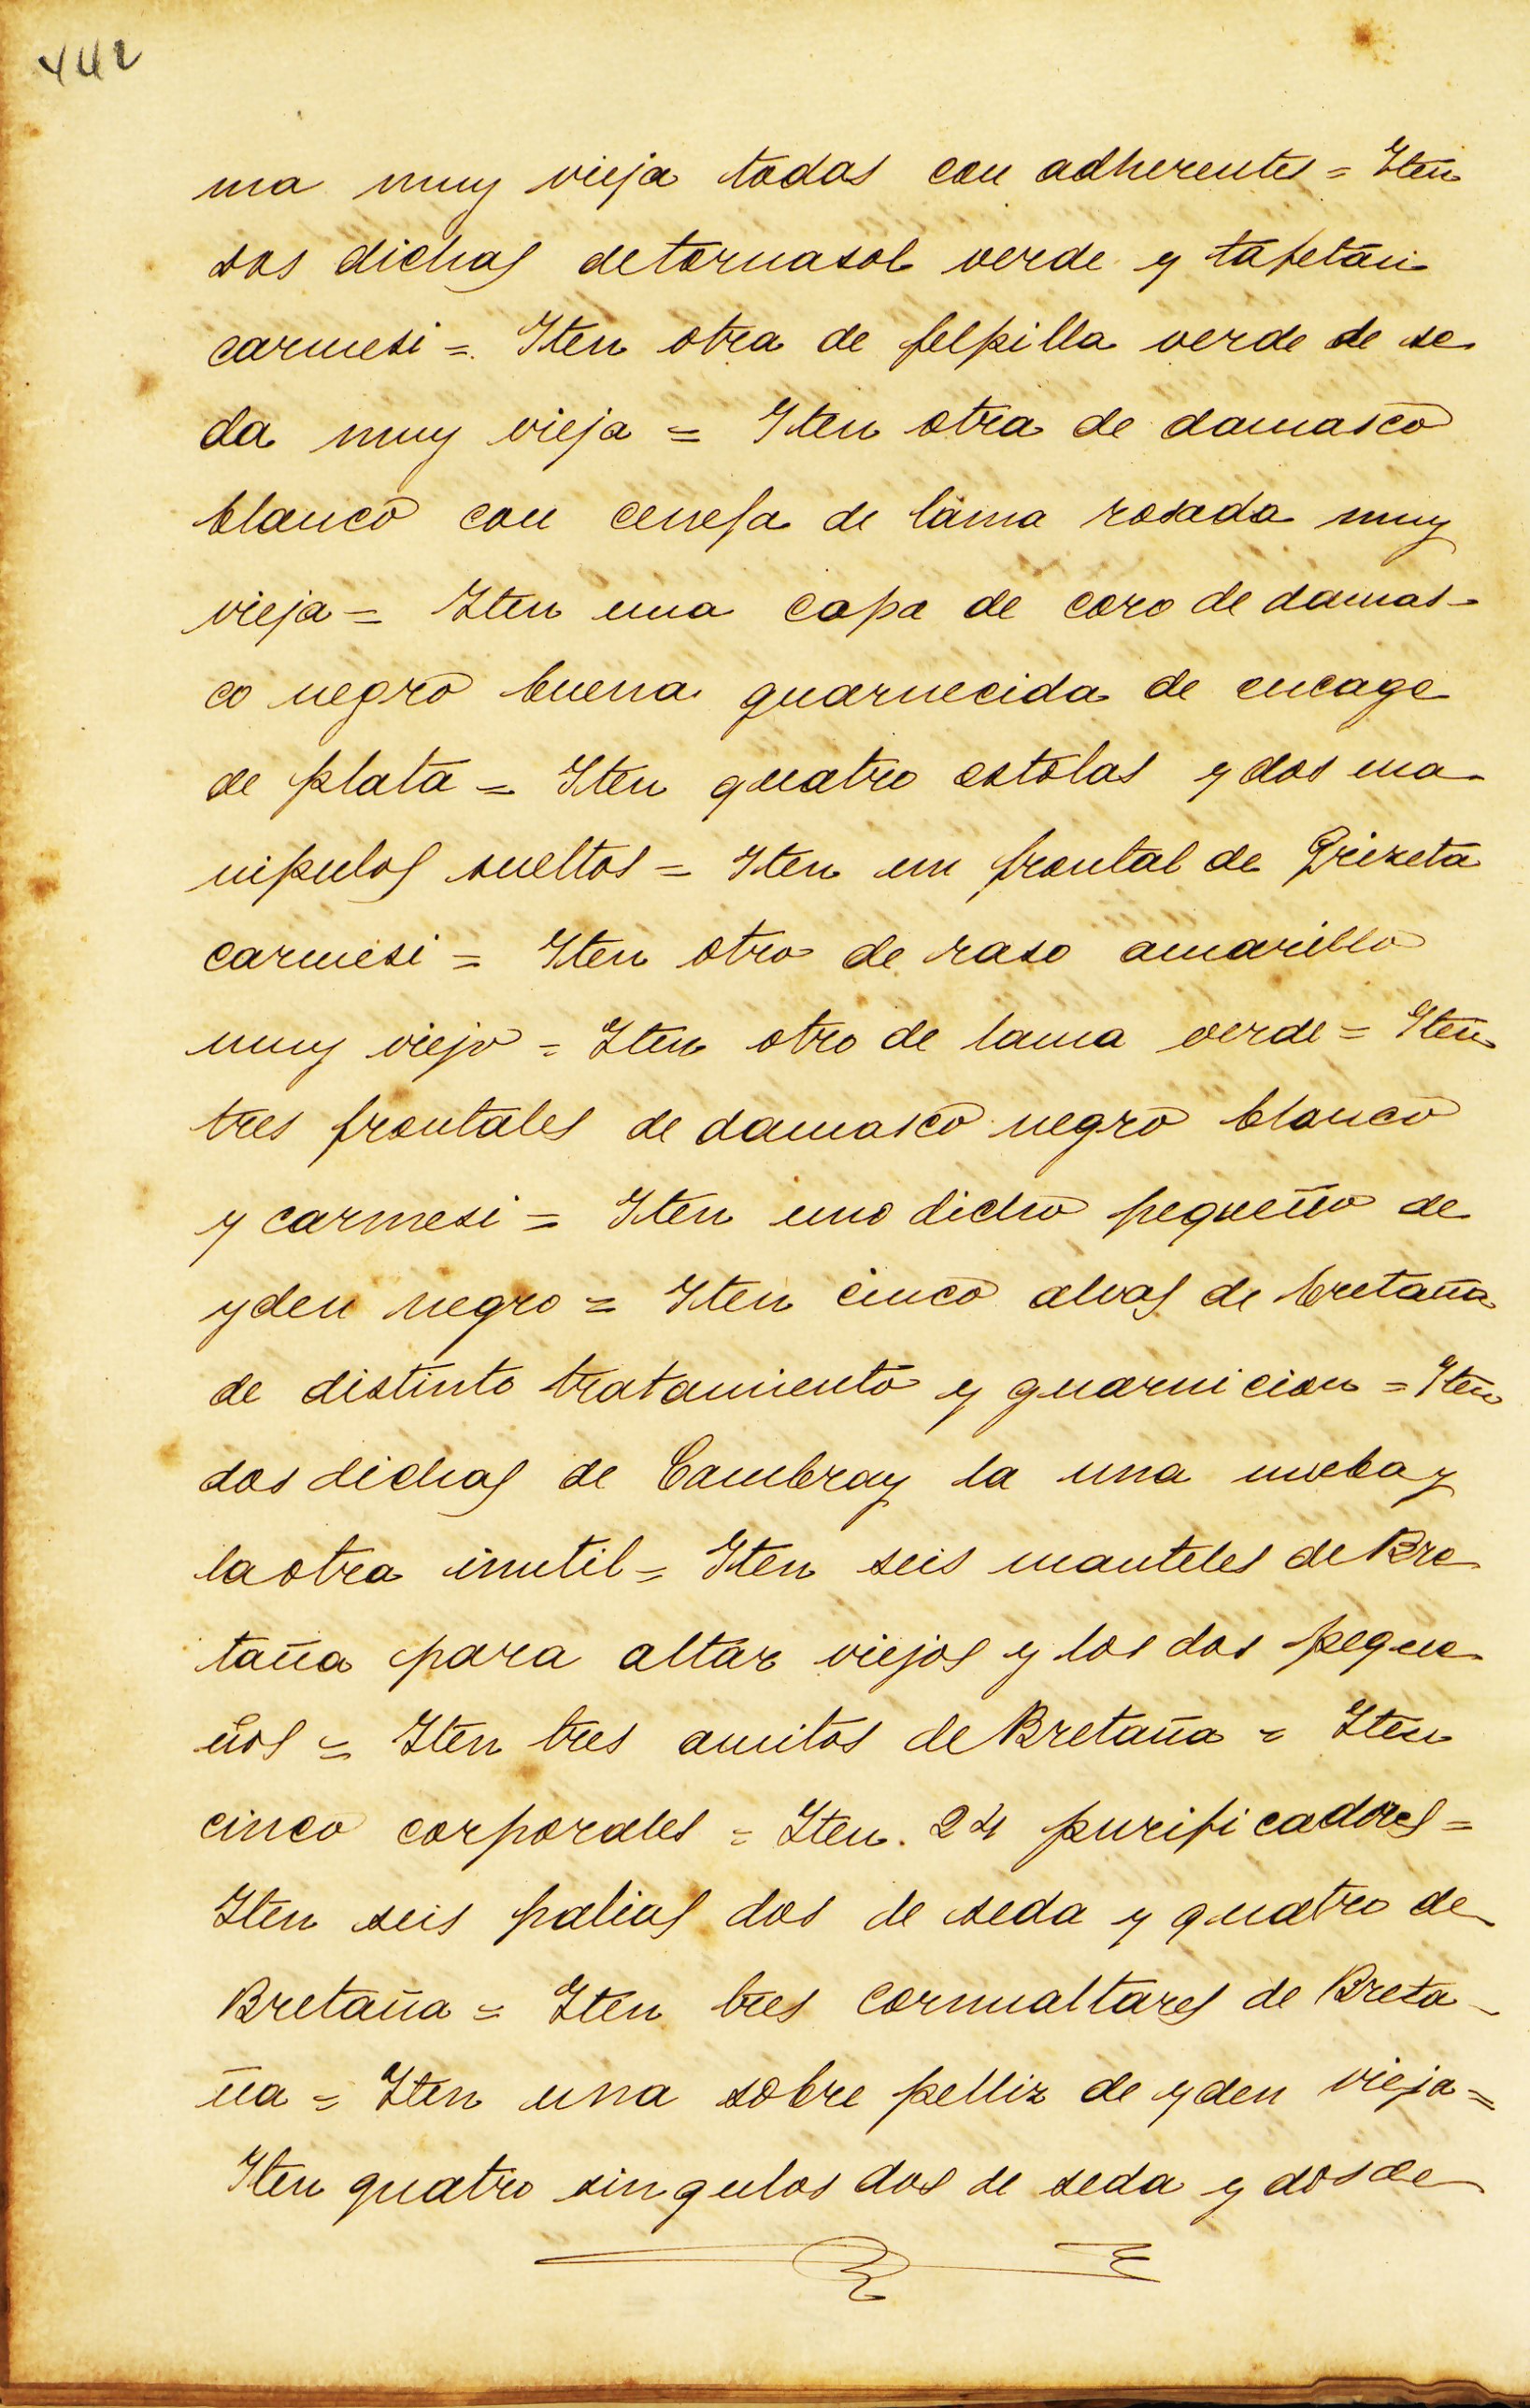 442
ma muy vieja todas con adherentes = Iten
dos dichas de tornasol verde y tafetan
carmesi = Iten otra de felpilla verde de se
da muy vieja = Iten otra de damasco
blanco con cenefa de lama rosada muy
vieja = Iten una capa de coro de damas-
co negro buena guarnecida de encage
de plata = Iten quatro estolas y dos ma
nipulos sueltos = Iten un frontal de Grizeta
carmesi = Iten otro de raso amarillo
muy viejo = Iten otro de lama verde = Iten
tres frontales de damasco negro blanco
y carmesi = Iten uno dicho pequeño de
yden negro = Iten cinco alvas de bretaña
de distinto tratamiento y guarnicion = Iten
dos dichas de Cambray la una nueba y
la otra inutil = Iten seis manteles de Bre
taña para altar viejos y los dos peque
ños = Iten tres amitos de Bretaña = Iten
cinco corporales = Iten. 24 purificadores =
Iten seis palias dos de seda y quatro de
Bretaña = Iten tres cornualtares de Breta-
ña = Iten una sobre pelliz de yden vieja =
Iten quatro singulos dos de seda y dos de